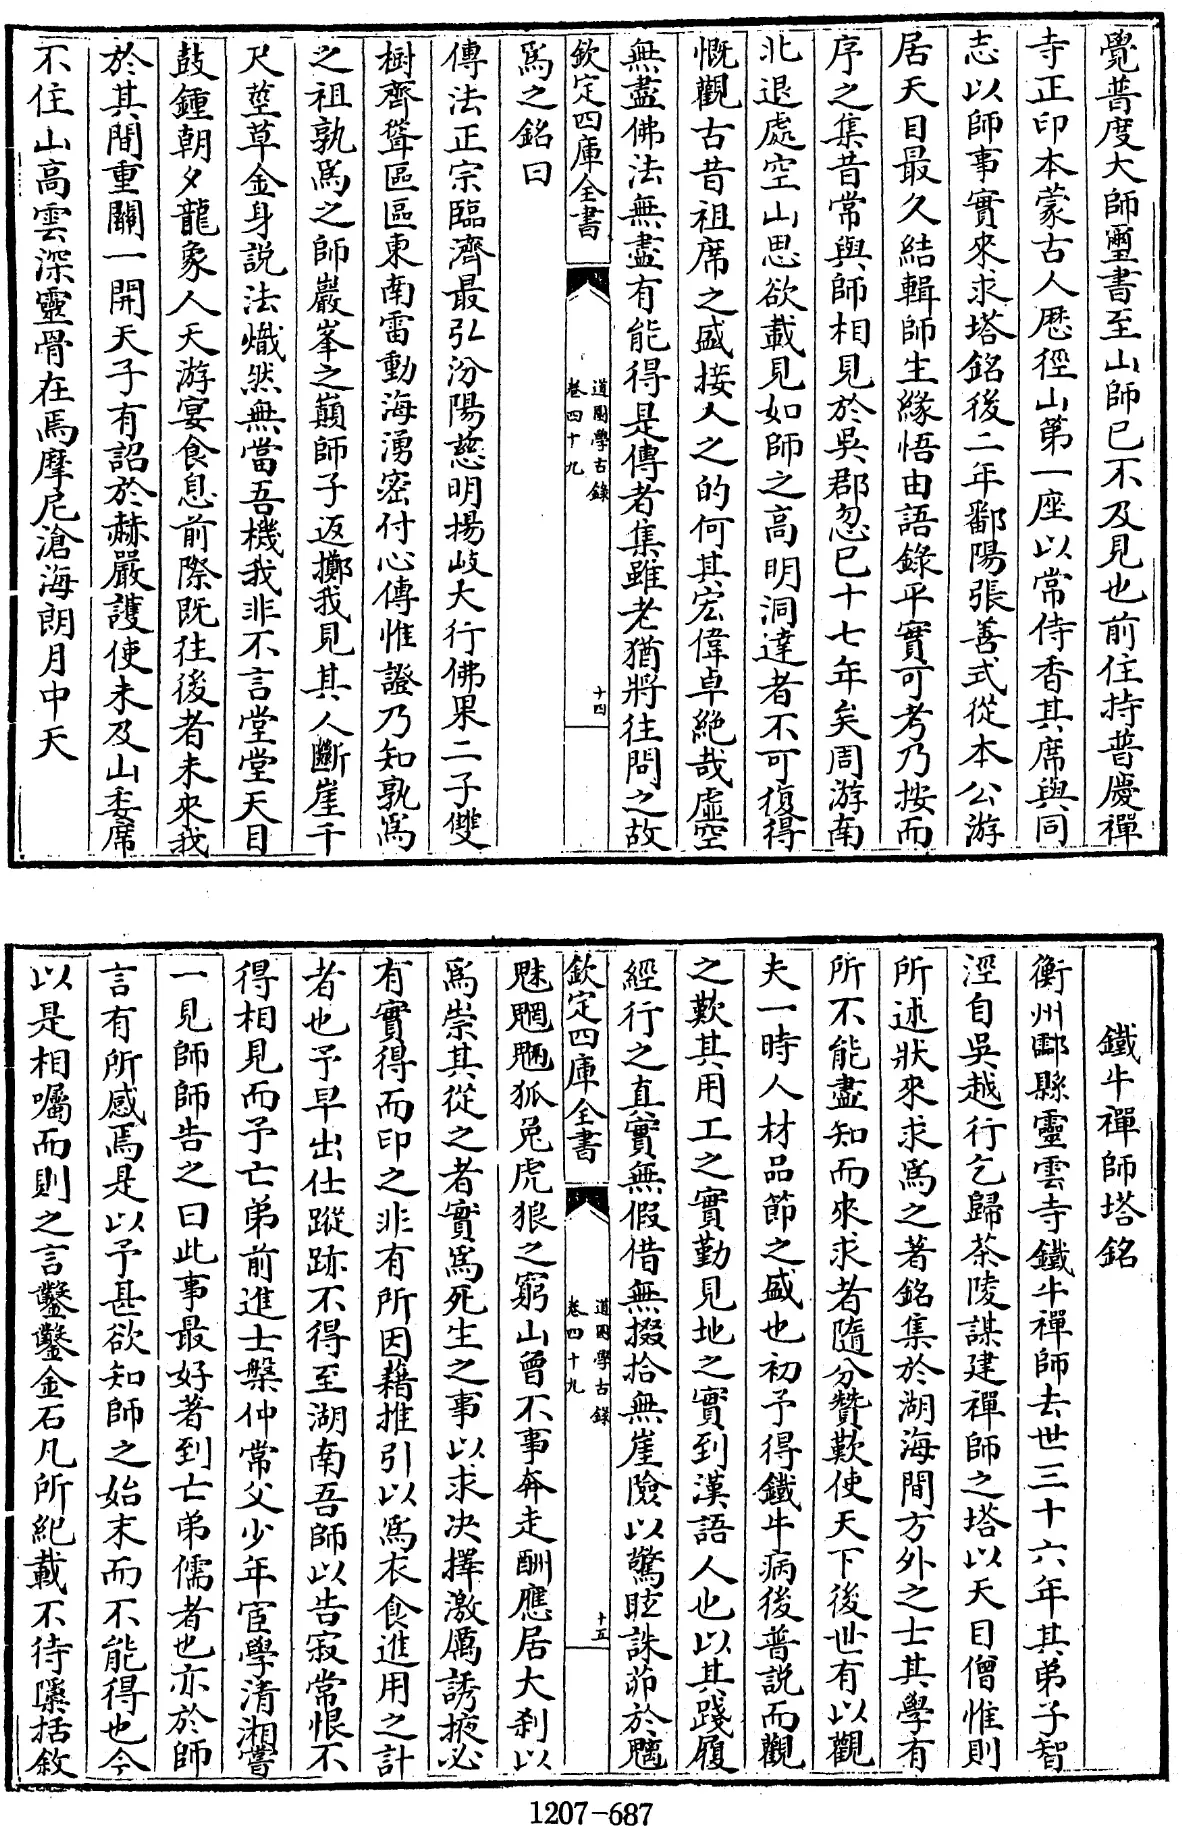 覺普度大師璽書至山師已不及見也前住持普慶禪
寺正印本蒙古人歴徑山第一座以常侍香其席與同
志以師事實來求塔銘後二年鄱陽張善式從本公游
居天目最久結輯師生緣悟由語錄平實可考乃按而
序之集昔常與師相見於吳郡忽已十七年矣周游南
北退處空山思欲載見如師之高明洞達者不可復得
慨觀古昔祖席之盛接人之的何其宏偉卓絶哉虛空
無盡佛法無盡有能得是傳者集雖老猶將往問之故
欽定四庫全書
道園學古錄
卷四十九
十四
爲之銘曰
傳法正宗臨濟最弘汾陽慈明揚岐大行佛果二子雙
樹齊聳區區東南雷動海湧密付心傳惟證乃知孰爲
之祖孰爲之師巖峯之巔師子返擲我見其人斷崖千
尺莖草金身説法熾然無當吾機我非不言堂堂天目
鼓鍾朝夕龍象人天游宴食息前際既往後者未來我
於其間重關一開天子有詔於赫嚴護使未及山委席
不住山高雲深靈骨在焉摩尼滄海朗月中天
鐵牛禪師塔銘
衡州酃縣靈雲寺鐵牛禪師去世三十六年其弟子智
涇自吳越行乞歸茶陵謀建禪師之塔以天目僧惟則
所述狀來求爲之著銘集於湖海間方外之士其學有
所不能盡知而來求者隨分贊歎使天下後世有以觀
夫一時人材品節之盛也初予得鐵牛病後普説而觀
之歎其用工之實勤見地之實到漢語人也以其踐履
經行之真實無假借無掇拾無崖險以驚眩誅茆於魑
欽定四庫全書
道園學古錄
卷四十九
十五
魅魍魎狐兔虎狼之窮山曾不事奔走酬應居大刹以
爲崇其從之者實爲死生之事以求決擇激厲誘掖必
有實得而印之非有所因藉推引以爲衣食進用之計
者也予早出仕蹤跡不得至湖南吾師以告寂常恨不
得相見而予亡弟前進士槃仲常父少年宦學清湘嘗
一見師師告之曰此事最好著到亡弟儒者也亦於師
言有所感焉是以予甚欲知師之始末而不能得也今
以是相囑而則之言鑿鑿金石凡所紀載不待檃括敘
1207-687